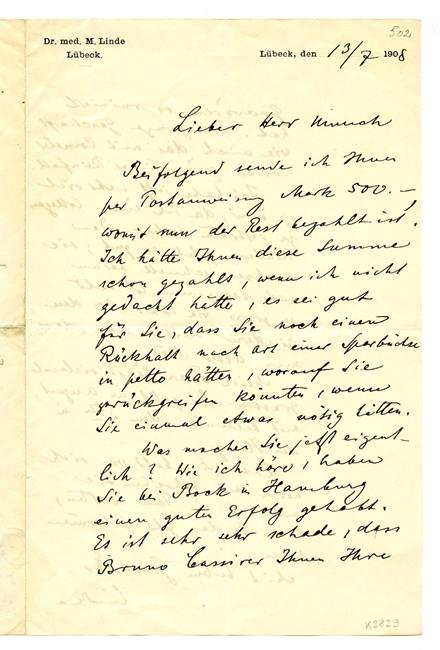 502
Dr. med. M. Linde
Lübeck.
Lübeck, den 13/7 1908
Lieber Herr Munch
Beifolgend sende ich Ihnen
per Postanweisung Mark 500.—,
womit nun der Rest bezahlt ist.
Ich hätte Ihnen diese Summe
schon gezahlt, wenn ich nicht
gedacht hätte, es sei gut
für Sie, dass Sie noch einen
Rückhalt nach Art einer Sparbüchse
in petto hätten, worauf Sie
zurückgreifen könnten, wenn
Sie einmal etwas nötig hätten.
Was machen Sie jetzt eigent-
lich? Wie ich höre, haben
Sie bei Bock in Hamburg
einen guten Erfolg gehabt.
Es ist sehr sehr schade, dass
Bruno Cassirer Ihnen Ihre
K2829